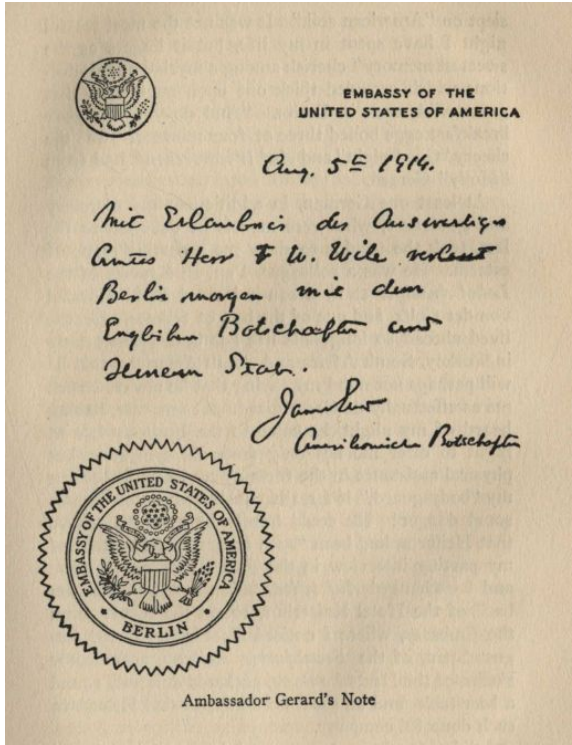 EMBASSY OF THE
UNITED STATES OF AMERICA
Aug. 5th 1914.
Mit Erlaubnis des Auswertigen
Amtes Herr F W. Wile verlasst
Berlin morgen mit dem
Englischen Botschafter und
seinem Stab.
Botschafter
EMBASSY OF THE UNITED STATES OF AMERICA
BERLIN
Ambassador Gerard's Note